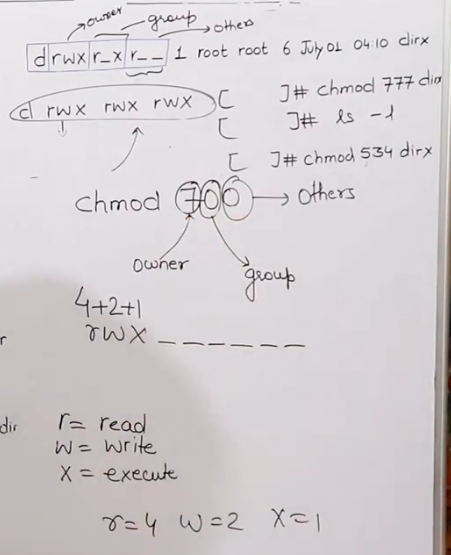 owner group others
drwx r_x r__ 1 root root 6 July 01 04:10 dirx
d rwx rwx rwx [ ]# chmod 777 dirx
[ ]# ls -l
[ ]# chmod 534 dirx
chmod 700 → others
owner group
4+2+1
r
rwx _ _ _ _ _ _
dir r= read
w= write
x = execute
r=4 w=2 x=1